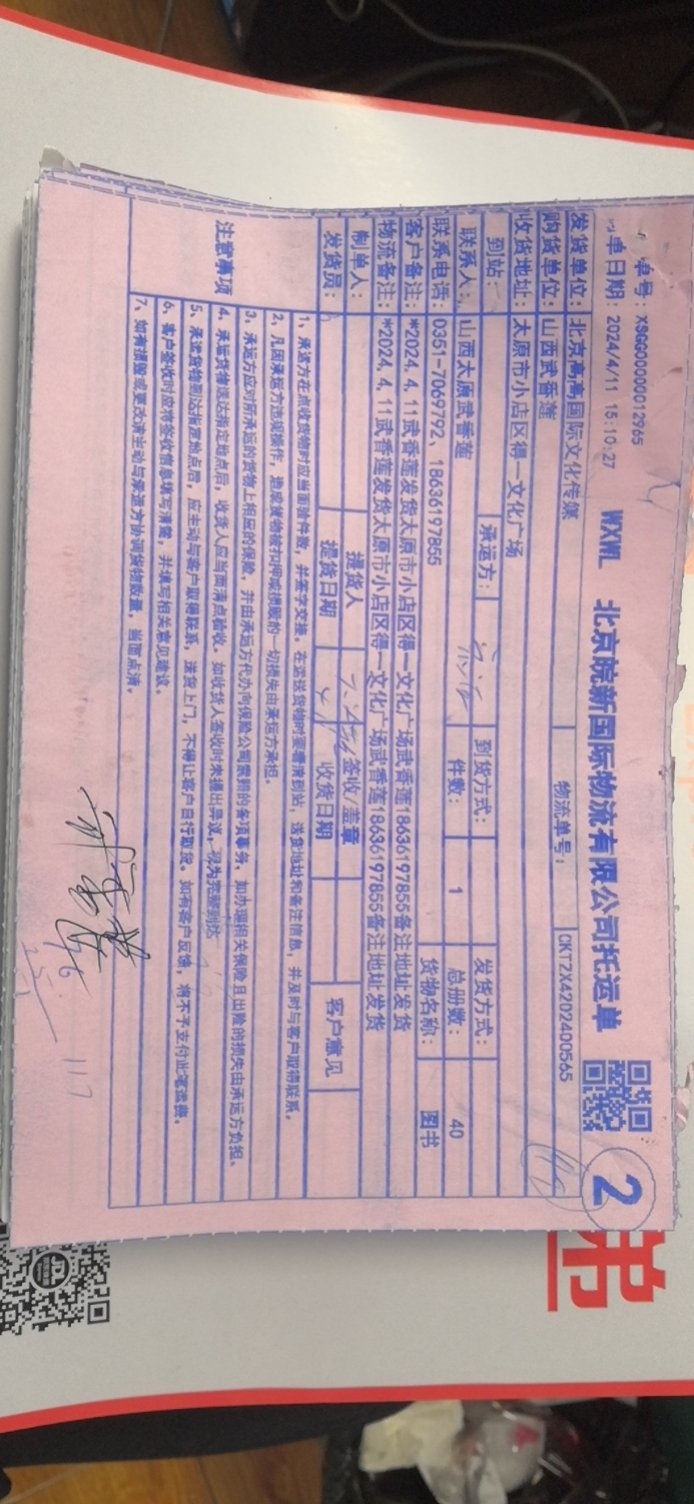 单号：XSGG00000012965
单日期：2024/4/11 15:10:27
WXWL 北京皖新国际物流有限公司托运单
2
发货单位：北京高高国际文化传媒
物流单号：
CKTZX4202400565
购货单位：山西武香莲
收货地址：太原市小店区得一文化广场
到站：
承运方：
到货方式：
发货方式：
联系人：山西太原武香莲
件数：
1
总册数：
40
联系电话：0351-7069792、18636197855
货物名称：
图书
客户备注：*2024.4.11武香莲发货太原市小店区得一文化广场武香莲18636197855备注地址发货
物流备注：*2024.4.11武香莲发货太原市小店区得一文化广场武香莲18636197855备注地址发货
制单人：
提货人
签收/盖章
客户意见
发货员：
提货日期
收货日期
注意事项
1、承运方在点收货物时应当面验件数，并签字交接。在运送货物时要看清到站，送货地址和备注信息，并及时与客户取得联系。
2、凡因承运方违规操作，造成货物被扣押或损毁的一切损失由承运方承担。
3、承运方应对所承运的货物上相应的保险，并由承运方代办向保险公司索赔的各项事务，如办理相关保险且出险的损失由承运方负担。
4、承运货物送达指定地点后，收货人应当面清点验收。如收货人签收时未提出异议，视为完整到达
5、承运货物到达指定地点后，应主动与客户取得联系，送货上门，不得让客户自行取货。如有客户反馈，将不予支付此笔运费。
6、客户签收时应将签收信息填写清楚，并填写相关意见建议。
7、如有损毁或更改请主动与承运方协调货物数量，当面点清。
117
弟
JDL